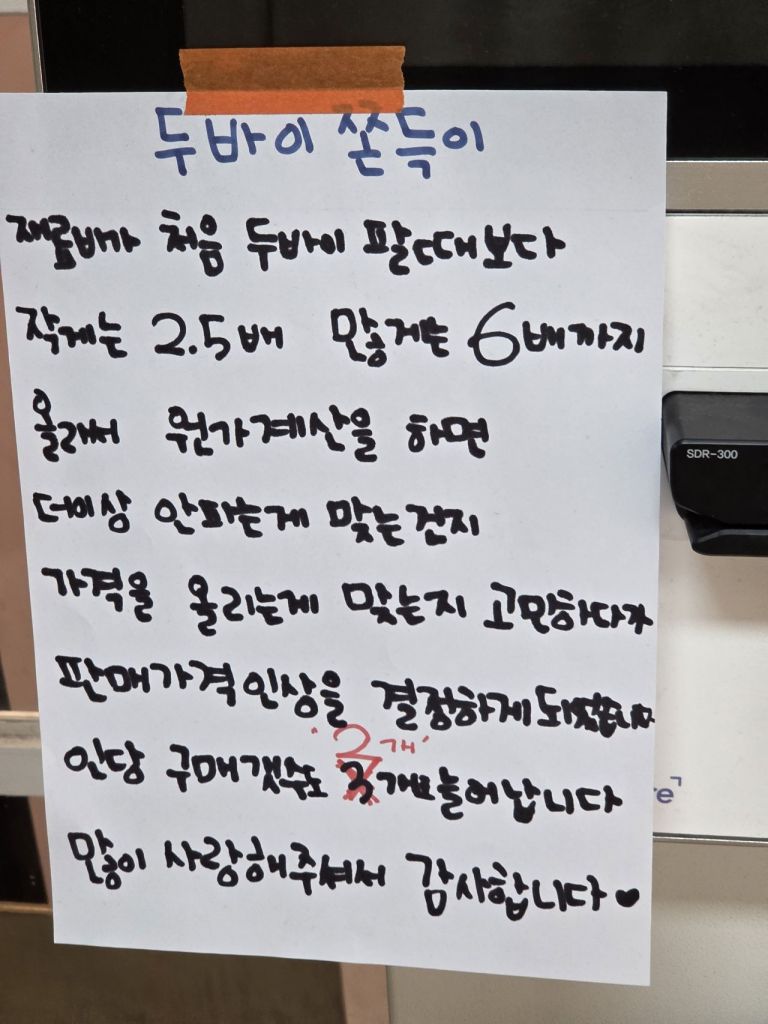 두바이 쫀득이
재료비가 처음 두바이 팔때보다
작게는 2.5배 많게는 6배까지
올라서 원가계산을 하면
더이상 안파는게 맞는건지
가격을 올리는게 맞는지 고민하다가
판매가격인상을 결정하게되었습니다
'2개'
인당 구매갯수도 3개로늘어납니다
많이 사랑해주셔서 감사합니다♥
SDR-300